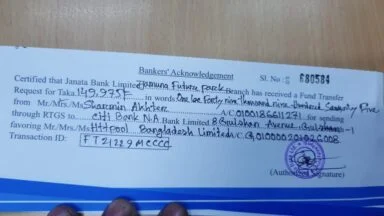 Bankers' Acknowledgement
Sl. No : 680584
Certified that Janata Bank Limited Jamuna Future Park Branch has received a Fund Transfer
Request for Taka 149,975/- in words One lac Forty nine thousand nine hundred Seventy Five
from Mr./Mrs./Ms Sharmin Akhter A/C 0100186611271 for sending
through RTGS to Citi Bank N.A Bank Limited 8 Gulshan Avenue, Gulshan-1
favoring Mr./Mrs./Ms Httpool Bangladesh Limited A/C
Transaction ID: FT21229MCCCC
(Authorized Signature)